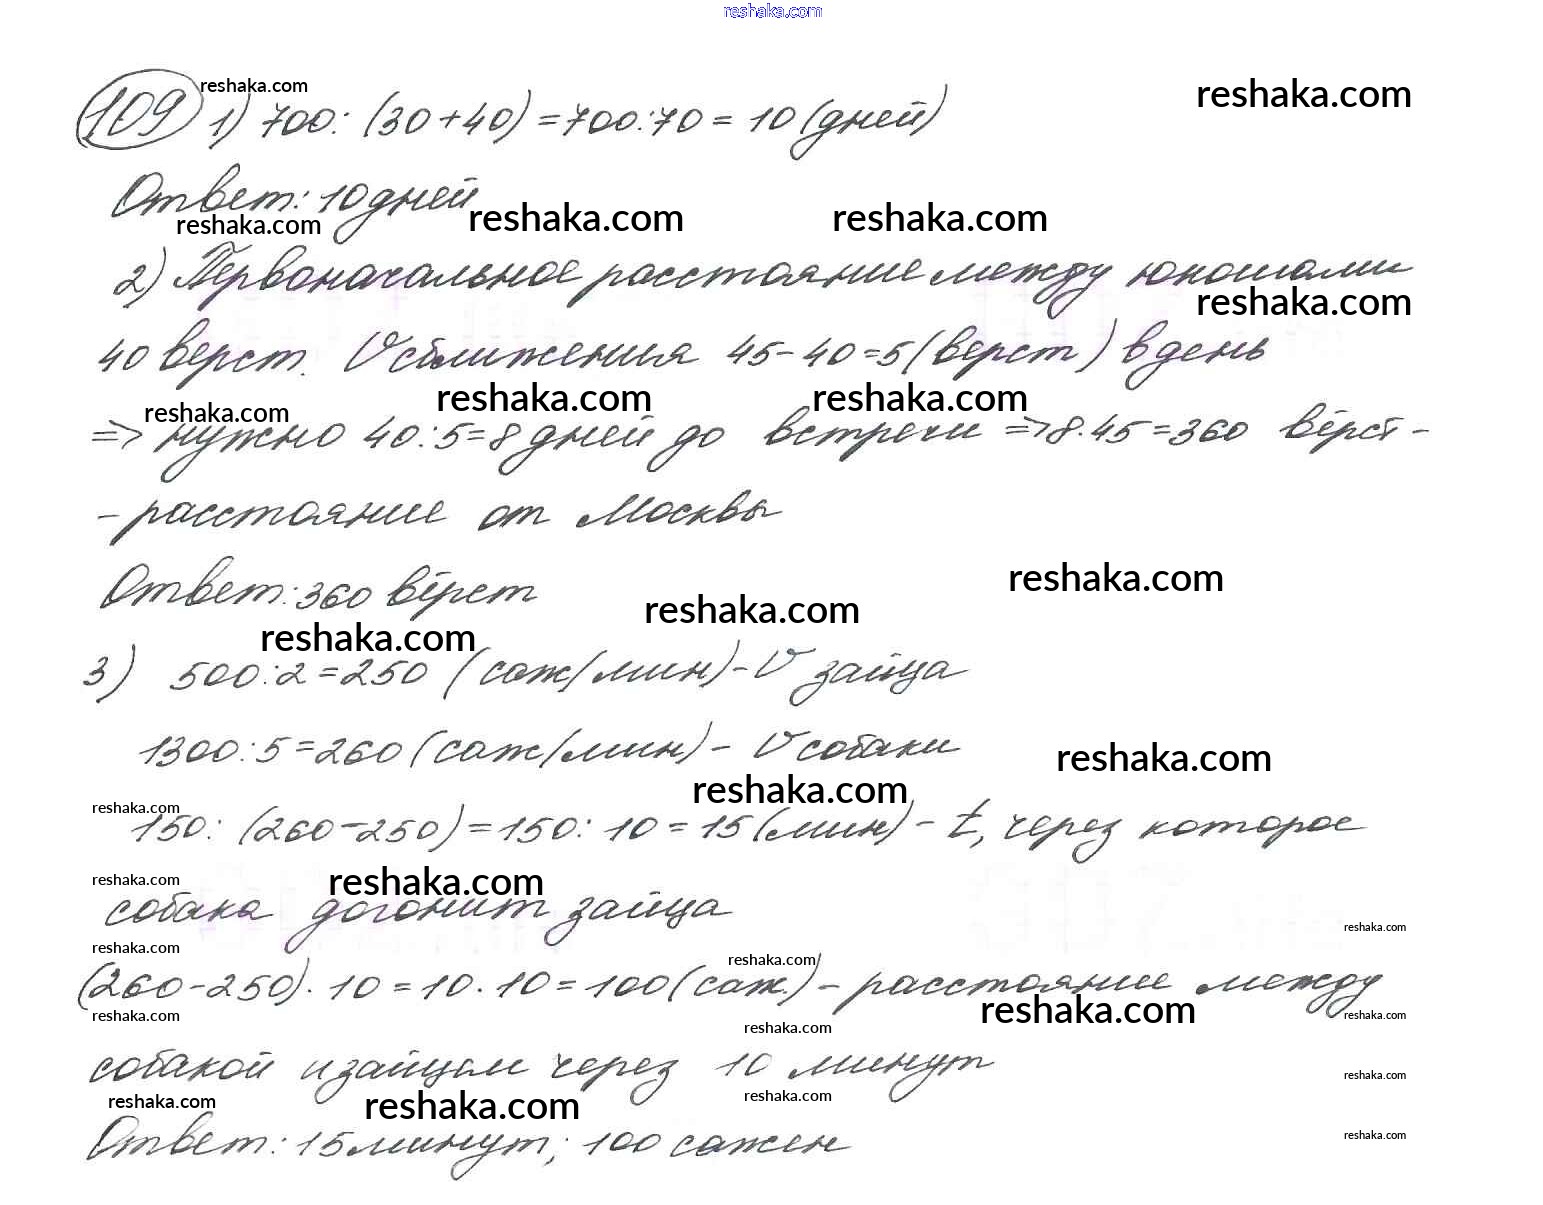 reshaka.com
109 1) 700 : (30 + 40) = 700 : 70 = 10 (дней)
reshaka.com reshaka.com
Ответ: 10 дней
reshaka.com reshaka.com reshaka.com
2) Первоначальное расстояние между юношами
reshaka.com
40 верст. V сближения 45 - 40 = 5 (верст) в день
reshaka.com reshaka.com reshaka.com
=> нужно 40 : 5 = 8 дней до встречи => 8 · 45 = 360 вёрст -
- расстояние от Москвы
Ответ: 360 вёрст
reshaka.com reshaka.com reshaka.com
3) 500 : 2 = 250 (саж/мин) - V зайца
1300 : 5 = 260 (саж/мин) - V собаки
reshaka.com reshaka.com reshaka.com
150 : (260 - 250) = 150 : 10 = 15 (мин) - t, через которое
reshaka.com reshaka.com
собака догонит зайца
reshaka.com reshaka.com reshaka.com
(260 - 250) · 10 = 10 · 10 = 100 (саж.) - расстояние между
reshaka.com reshaka.com reshaka.com reshaka.com
собакой и зайцем через 10 минут
reshaka.com
reshaka.com reshaka.com reshaka.com
Ответ: 15 минут; 100 сажен
reshaka.com